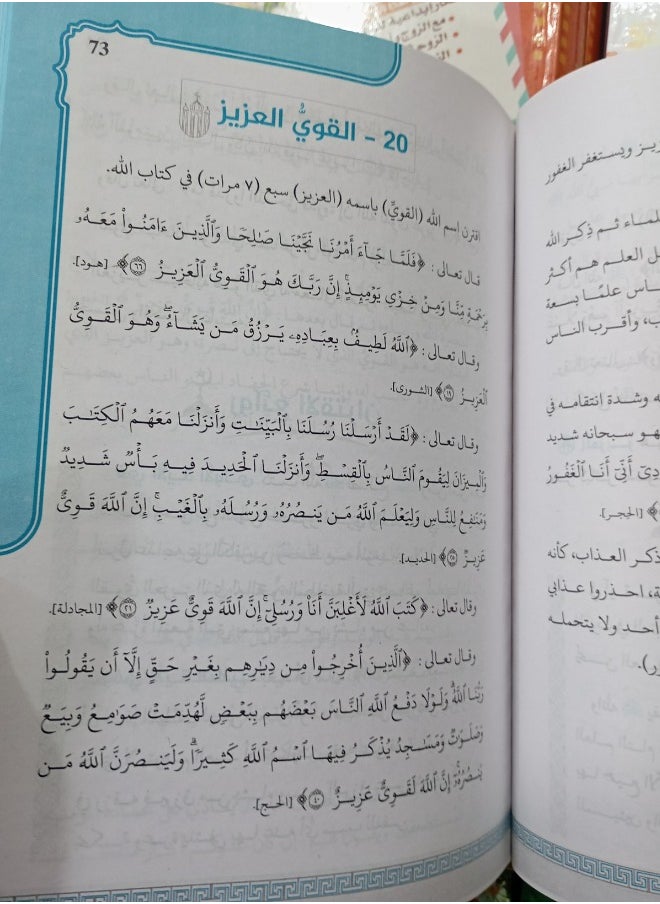 73
20 - القويُّ العزيز
اقترن اسم الله (القويّ) باسمه (العزيز) سبع (٧ مرات) في كتاب الله.
قال تعالى: ﴿فَلَمَّا جَآءَ أَمۡرُنَا نَجَّيۡنَا صَٰلِحٗا وَٱلَّذِينَ ءَامَنُواْ مَعَهُۥ
بِرَحۡمَةٖ مِّنَّا وَمِنۡ خِزۡيِ يَوۡمِئِذٍۚ إِنَّ رَبَّكَ هُوَ ٱلۡقَوِيُّ ٱلۡعَزِيزُ ٦٦﴾ [هود].
وقال تعالى: ﴿ٱللَّهُ لَطِيفُۢ بِعِبَادِهِۦ يَرۡزُقُ مَن يَشَآءُۖ وَهُوَ ٱلۡقَوِيُّ
ٱلۡعَزِيزُ ١٩﴾ [الشورى].
وقال تعالى: ﴿لَقَدۡ أَرۡسَلۡنَا رُسُلَنَا بِٱلۡبَيِّنَٰتِ وَأَنزَلۡنَا مَعَهُمُ ٱلۡكِتَٰبَ
وَٱلۡمِيزَانَ لِيَقُومَ ٱلنَّاسُ بِٱلۡقِسۡطِۖ وَأَنزَلۡنَا ٱلۡحَدِيدَ فِيهِ بَأۡسٞ شَدِيدٞ
وَمَنَٰفِعُ لِلنَّاسِ وَلِيَعۡلَمَ ٱللَّهُ مَن يَنصُرُهُۥ وَرُسُلَهُۥ بِٱلۡغَيۡبِۚ إِنَّ ٱللَّهَ قَوِيٌّ
عَزِيزٞ ٢٥﴾ [الحديد].
وقال تعالى: ﴿كَتَبَ ٱللَّهُ لَأَغۡلِبَنَّ أَنَا۠ وَرُسُلِيٓۚ إِنَّ ٱللَّهَ قَوِيٌّ عَزِيزٞ ٢١﴾ [المجادلة].
وقال تعالى: ﴿ٱلَّذِينَ أُخۡرِجُواْ مِن دِيَٰرِهِم بِغَيۡرِ حَقٍّ إِلَّآ أَن يَقُولُواْ
رَبُّنَا ٱللَّهُۗ وَلَوۡلَا دَفۡعُ ٱللَّهِ ٱلنَّاسَ بَعۡضَهُم بِبَعۡضٖ لَّهُدِّمَتۡ صَوَٰمِعُ وَبِيَعٞ
وَصَلَوَٰتٞ وَمَسَٰجِدُ يُذۡكَرُ فِيهَا ٱسۡمُ ٱللَّهِ كَثِيرٗاۗ وَلَيَنصُرَنَّ ٱللَّهُ مَن
يَنصُرُهُۥٓۚ إِنَّ ٱللَّهَ لَقَوِيٌّ عَزِيزٌ ٤٠﴾ [الحج].
ويستغفر الغفور
ثم ذِكر الله
ل العلم هم أكثر
علمًا بسعة
وأقرب الناس
وشدة انتقامه في
سبحانه شديد
أَنِّيٓ أَنَا ٱلۡغَفُورُ
﴾ [الحجر].
ذكر العذاب، كأنه
احذروا عذابي
أحد ولا يتحمله